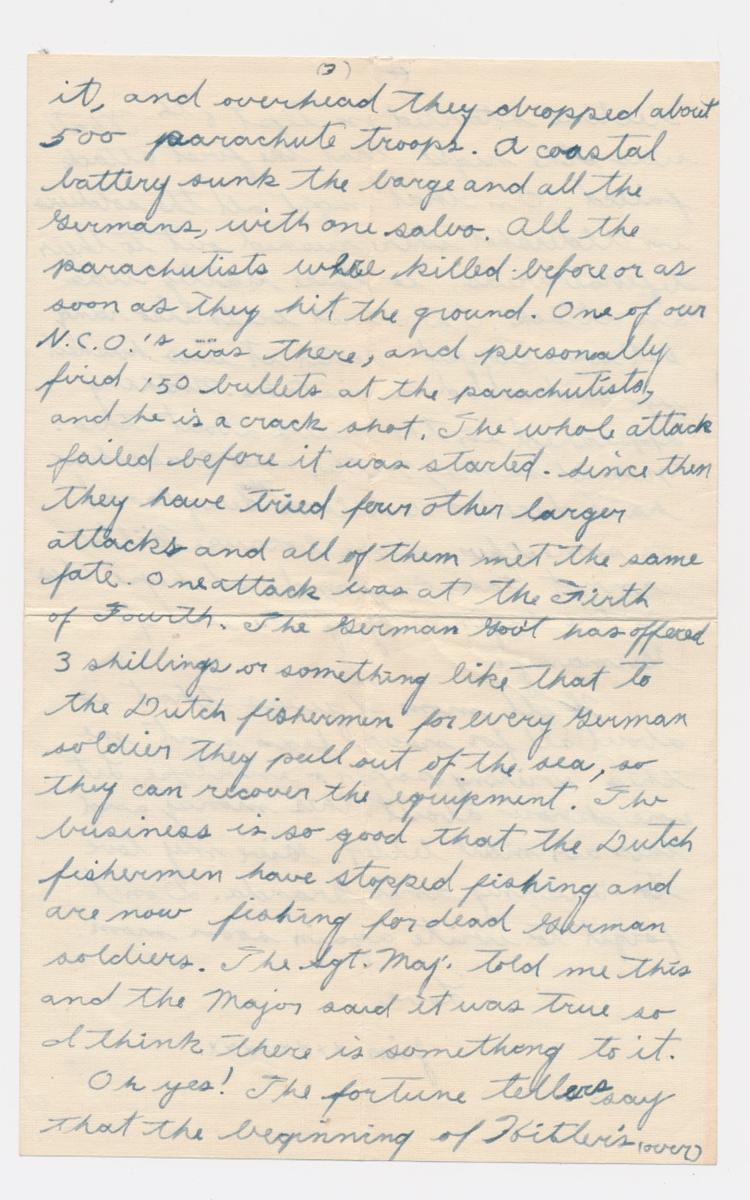 (3)
it, and overhead they dropped about
500 parachute troops. A coastal
battery sunk the barge and all the
Germans, with one salvo. All the
parachutists were killed before or as
soon as they hit the ground. One of our
N.C.O.'s was there, and personally
fired 150 bullets at the parachutists,
and he is a crack shot. The whole attack
failed before it was started. Since then
they have tried four other larger
attacks and all of them met the same
fate. One attack was at the Firth
of Fourth. The German Gov't has offered
3 shillings or something like that to
the Dutch fishermen for every German
soldier they pull out of the sea, so
they can recover the equipment. The
business is so good that the Dutch
fishermen have stopped fishing and
are now fishing for dead German
soldiers. The Sgt. Maj. told me this
and the Major said it was true so
I think there is something to it.
Oh yes! The fortune tellers say
that the beginning of Hitler's (over)